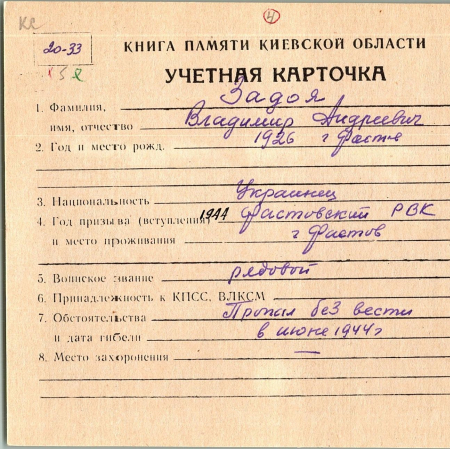 КС
4
20-33
52
КНИГА ПАМЯТИ КИЕВСКОЙ ОБЛАСТИ
УЧЕТНАЯ КАРТОЧКА
1. Фамилия, Задоя
имя, отчество Владимир Андреевич
2. Год и место рожд. 1926 г Фастов
3. Национальность Украинец
4. Год призыва (вступления) 1944 Фастовский РВК
и место проживания г Фастов
5. Воинское звание рядовой
6. Принадлежность к КПСС, ВЛКСМ
7. Обстоятельства Пропал без вести
и дата гибели в июне 1944 г
8. Место захоронения —